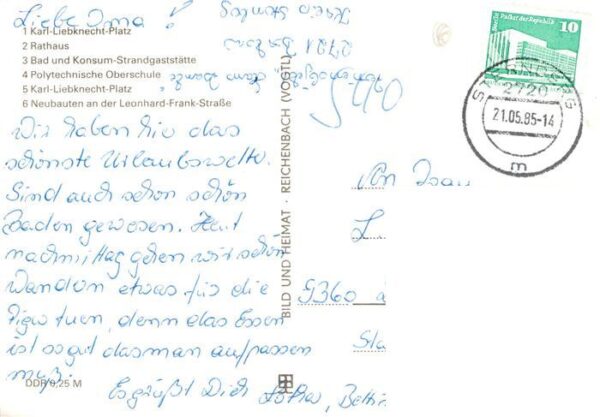 Liebe Oma!
1 Karl-Liebknecht-Platz
2 Rathaus
3 Bad und Konsum-Strandgaststätte
4 Polytechnische Oberschule
5 Karl-Liebknecht-Platz
6 Neubauten an der Leonhard-Frank-Straße
Wir haben hier das
schönste Urlaubswetter.
Sind auch schon schön
Baden gewesen. Heut
nachmittag gehen wir schön
wandern etwas für die
Figur tuen, denn das Essen
ist so gut dasman aufpassen
muß.
Es grüßt Dich Lothar, Bettin
DDR 0,25 M
BILD UND HEIMAT · REICHENBACH (VOGTL)
2721
Palast der Republik
10
DDR
STERNBERG
2720
21.05.85-14
m
9360